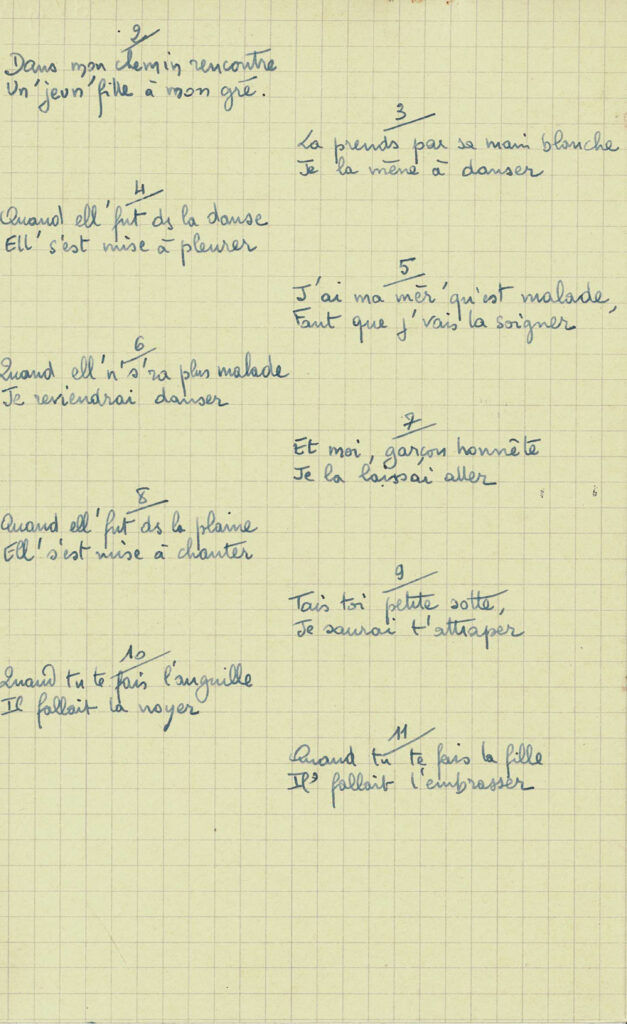 2
Dans mon chemin rencontre
Un' jeun' fille à mon gré.
3
La prends par sa main blanche
Je la mène à danser
4
Quand ell' fut ds la danse
Ell' s'est mise à pleurer
5
J'ai ma mèr' qu'est malade,
Faut que j'vais la soigner
6
Quand ell' n's'ra plus malade
Je reviendrai danser
7
Et moi, garçon honnête
Je la laissai aller
8
Quand ell' fut ds la plaine
Ell' s'est mise à chanter
9
Tais toi petite sotte,
Je saurai t'attraper
10
Quand tu te fais l'anguille
Il fallait la noyer
11
Quand tu te fais la fille
Il' fallait l'embrasser